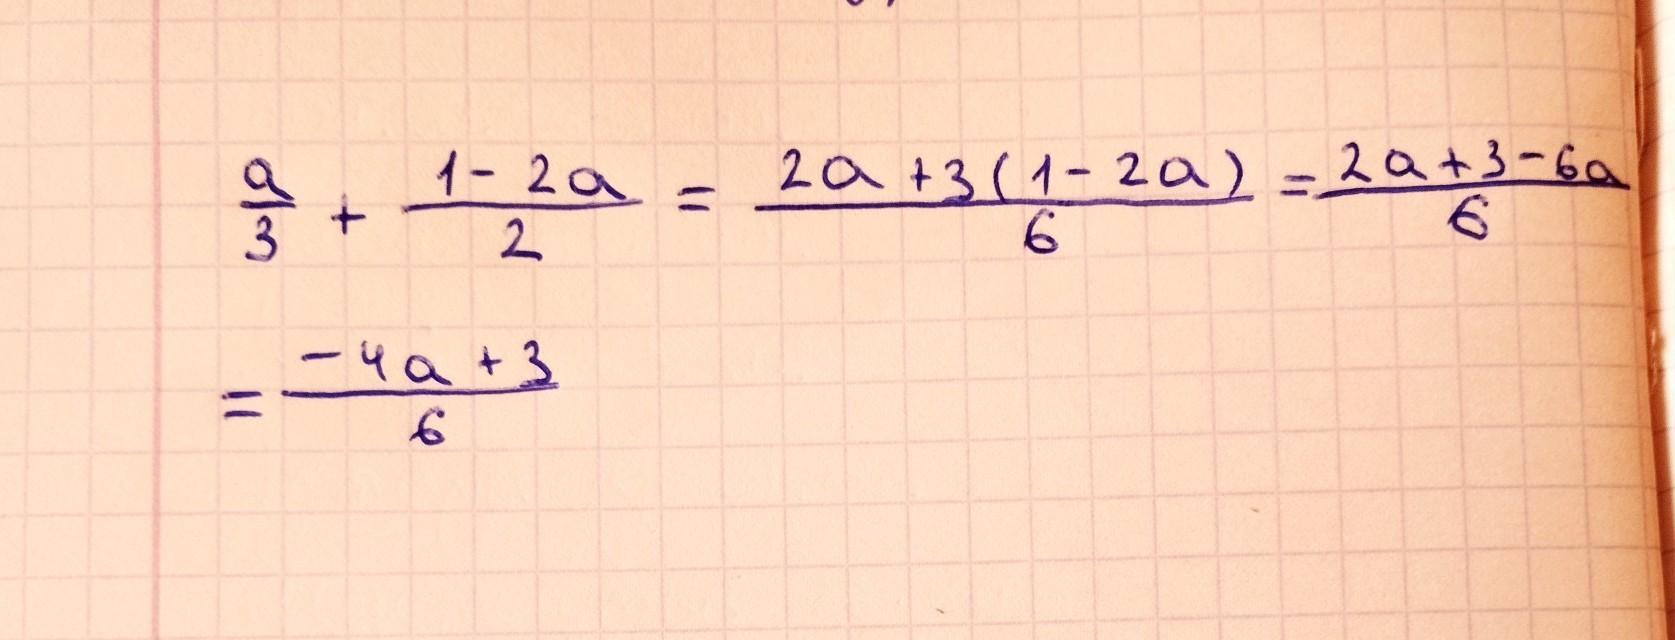 a/3 + (1 - 2a)/2 = (2a + 3(1 - 2a))/6 = (2a + 3 - 6a)/6
= (-4a + 3)/6